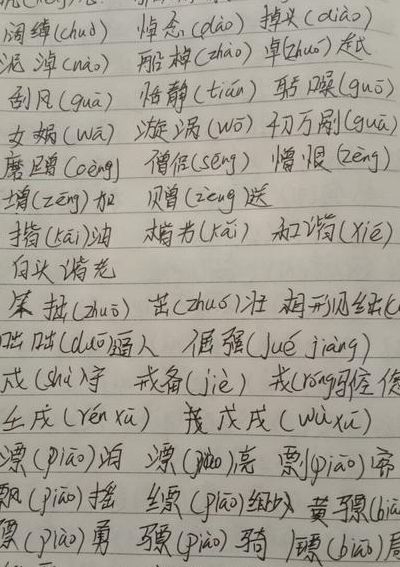 阔绰(chuò) 悼念(dào) 掉头(diào)
泥淖(nào) 船棹(zhào) 卓(zhuó)越
刮风(guā) 恬静(tián) 聒噪(guō)
女娲(wā) 漩涡(wō) 千刀万剐(guǎ)
磨蹭(cèng) 僧侣(sēng) 憎恨(zēng)
增(zēng)加 赠(zèng)送
揩(kāi)油 楷书(kǎi) 和谐(xié)
白头谐老
笨拙(zhuō) 茁(zhuó)壮 相形见绌(c
咄咄(duō)逼人 倔强(jué jiàng)
戍(shù)守 戒备(jiè) 戎(róng)
壬戌(rén xū) 戊戌(wù xū)
漂(piāo)泊 漂(piào)亮 剽(piāo)
飘(piāo)摇 缥(piāo)缈 黄骠(biā
(piào)勇 骠(piào)骑 膘(biāo)